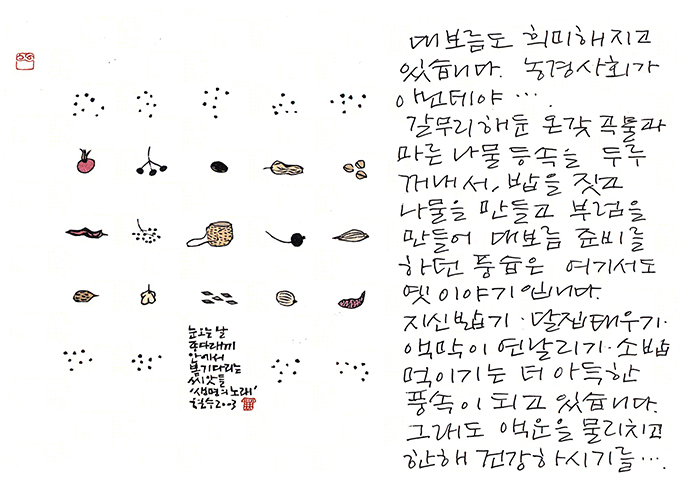 눈오는 날
종다래끼
안에서
봄기다리는
씨앗들
'생명의 노래'
철수2003
대보름도 희미해지고
있습니다. 농경사회가
아닌데야 ….
갈무리해둔 온갖 곡물과
마른 나물 등속을 두루
꺼내서, 밥을 짓고
나물을 만들고 부럼을
만들어 대보름 준비를
하던 풍습은 여기서도
옛이야기입니다.
지신밟기·달집태우기·
액막이 연날리기·소밥
먹이기는 더 아득한
풍속이 되고 있습니다.
그래도 액운을 물리치고
한해 건강하시기를….